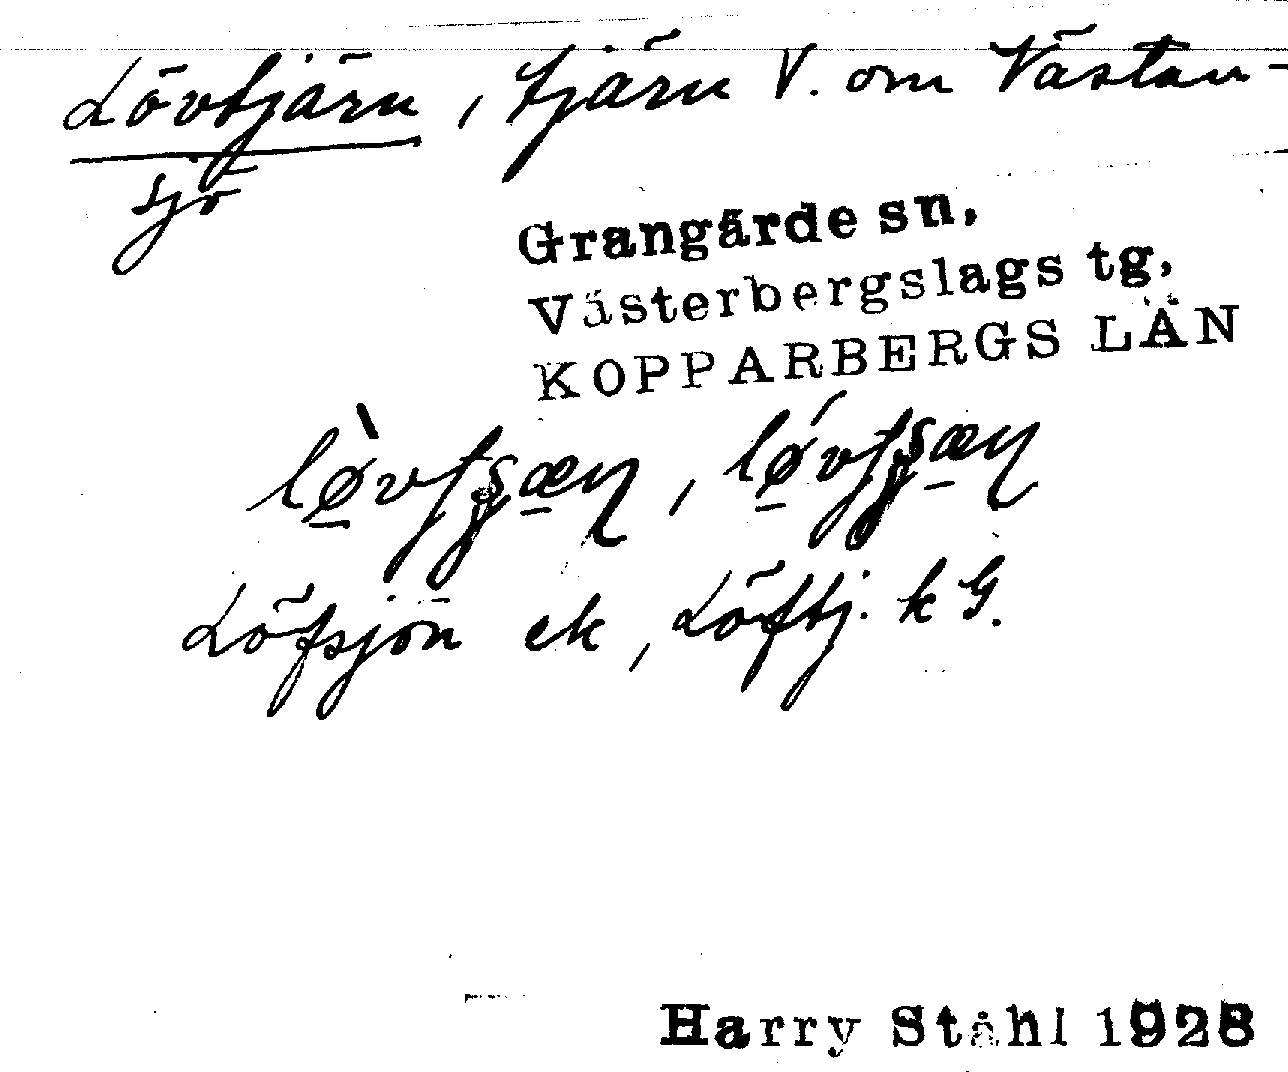 Lövtjärn, tjärn V. om Västan-
sjö
Grangärde sn,
Västerbergslags tg,
KOPPARBERGS LÄN
Löfsjön ek, Löftj. k G.
Harry Ståhl 1928